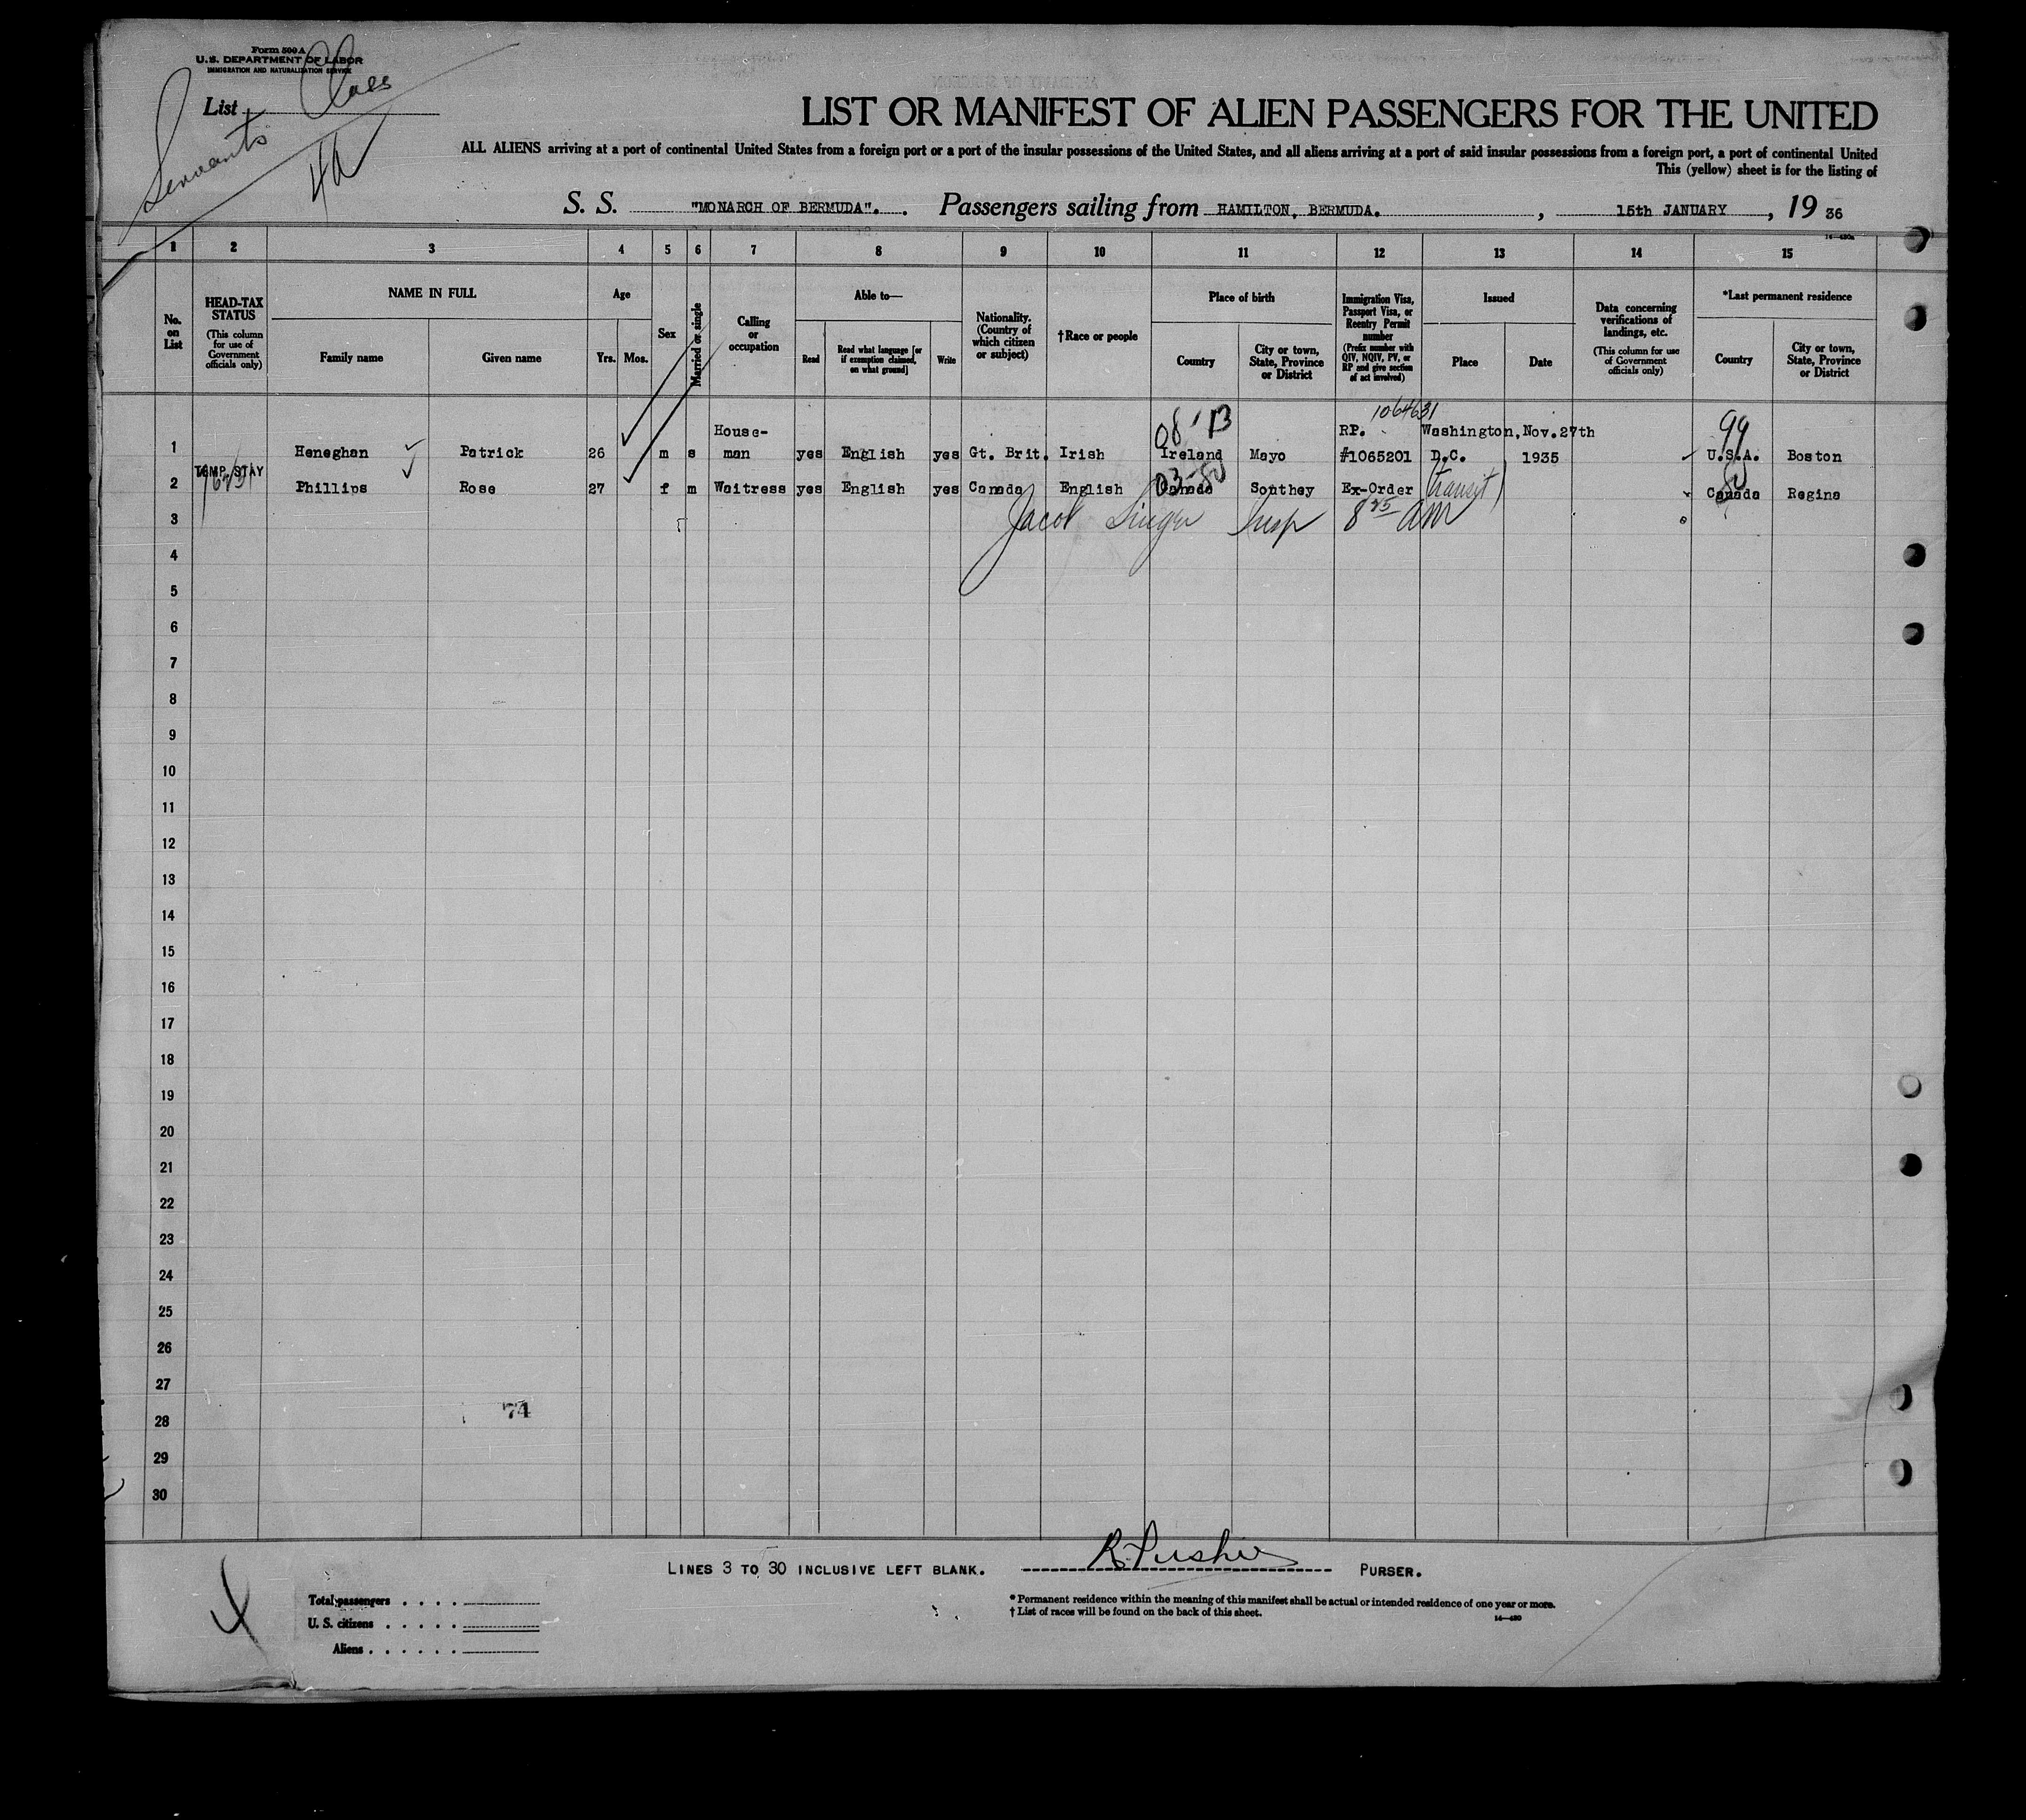 Form 500 A
U. S. DEPARTMENT OF LABOR
IMMIGRATION AND NATURALIZATION SERVICE
List
Servants Class
4a
LIST OR MANIFEST OF ALIEN PASSENGERS FOR THE UNITED
ALL ALIENS arriving at a port of continental United States from a foreign port or a port of the insular possessions of the United States, and all aliens arriving at a port of said insular possessions from a foreign port, a port of continental United
This (yellow) sheet is for the listing of
S. S. "MONARCH OF BERMUDA". Passengers sailing from HAMILTON, BERMUDA. , 15th JANUARY , 19 36
1 2 3 4 5 6 7 8 9 10 11 12 13 14 15
No. on List
HEAD-TAX STATUS (This column for use of Government officials only)
NAME IN FULL
Family name Given name
Age
Yrs. Mos.
Sex
Married or single
Calling or occupation
Able to—
Read Read what language [or if exemption claimed, on what ground] Write
Nationality. (Country of which citizen or subject)
†Race or people
Place of birth
Country City or town, State, Province or District
Immigration Visa, Passport Visa, or Reentry Permit number (Prefix number with QIV, NQIV, PV, or RP and give section of act involved)
Issued
Place Date
Data concerning verifications of landings, etc. (This column for use of Government officials only)
*Last permanent residence
Country City or town, State, Province or District
1064631
08' B 99
House- RP. Washington, Nov. 27th
1 Heneghan Patrick 26 m s man yes English yes Gt. Brit. Irish Ireland Mayo #1065201 D.C. 1935 U.S.A. Boston
TEMP. STAY
03-80 80
2 Phillips Rose 27 f m Waitress yes English yes Canada English Canada Southey Ex-Order (transit) Canada Regina
3 Jacob Singer Insp 8 25 AM
4
5
6
7
8
9
10
11
12
13
14
15
16
17
18
19
20
21
22
23
24
25
26
27
28
74
29
30
LINES 3 TO 30 INCLUSIVE LEFT BLANK. PURSER.
Total passengers
U. S. citizens
Aliens
* Permanent residence within the meaning of this manifest shall be actual or intended residence of one year or more.
† List of races will be found on the back of this sheet.
14—480